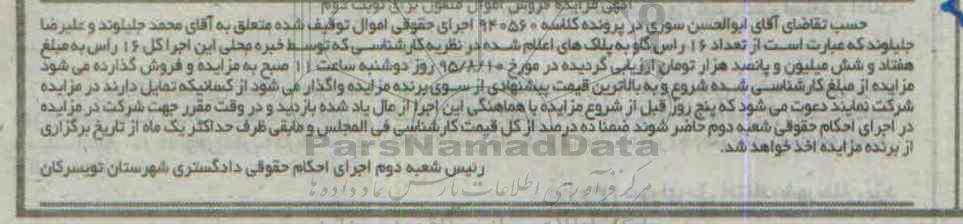 آگهی مزایده فروش اموال منقول برای نوبت دوم
حسب تقاضای آقای ابوالحسن سوری در پرونده کلاسه ۹۴۰۵۶۰ اجرای حقوقی اموال توقیف شده متعلق به آقای محمد جلیلوند و علیرضا
جلیلوند که عبارت است از تعداد ۱۶ راس گاو به پلاک های اعلام شده در نظریه کارشناسی که توسط خبره محلی این اجرا کل ۱۶ راس به مبلغ
هفتاد و شش میلیون و پانصد هزار تومان ارزیابی گردیده در مورخ ۹۵/۸/۱۰ روز دوشنبه ساعت ۱۱ صبح به مزایده و فروش گذارده می شود
مزایده از مبلغ کارشناسی شده شروع و به بالاترین قیمت پیشنهادی از سوی برنده مزایده واگذار می شود از کسانیکه تمایل دارند در مزایده
شرکت نمایند دعوت می شود که پنج روز قبل از شروع مزایده با هماهنگی این اجرا از مال یاد شده بازدید و در وقت مقرر جهت شرکت در مزایده
در اجرای احکام حقوقی شعبه دوم حاضر شوند ضمنا ده درصد از کل قیمت کارشناسی فی المجلس و مابقی ظرف حداکثر یک ماه از تاریخ برگزاری
از برنده مزایده اخذ خواهد شد.
ParsNamadData
رئیس شعبه دوم اجرای احکام حقوقی دادگستری شهرستان تویسرکان
مرکز فرآوری اطلاعات پارس نماد داده ها